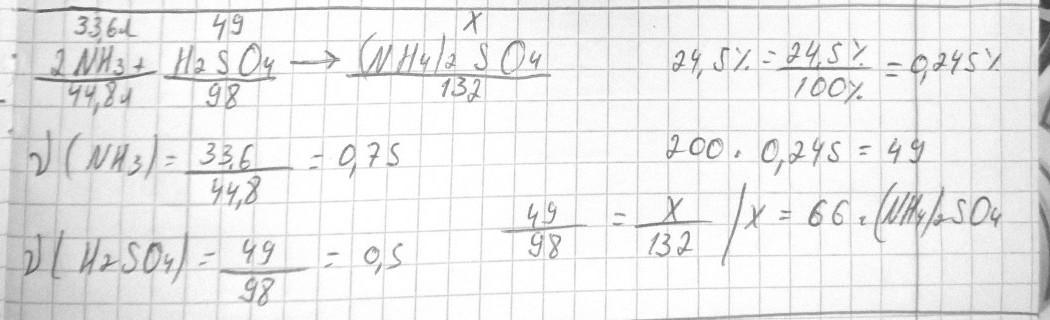 33,6л 49 x
2NH3 + H2SO4 → (NH4)2SO4
44,8л 98 132
24,5% = 24,5% / 100% = 0,245%
ν(NH3) = 33,6 / 44,8 = 0,75
200 · 0,245 = 49
49 / 98 = x / 132 / x = 66г (NH4)2SO4
ν(H2SO4) = 49 / 98 = 0,5